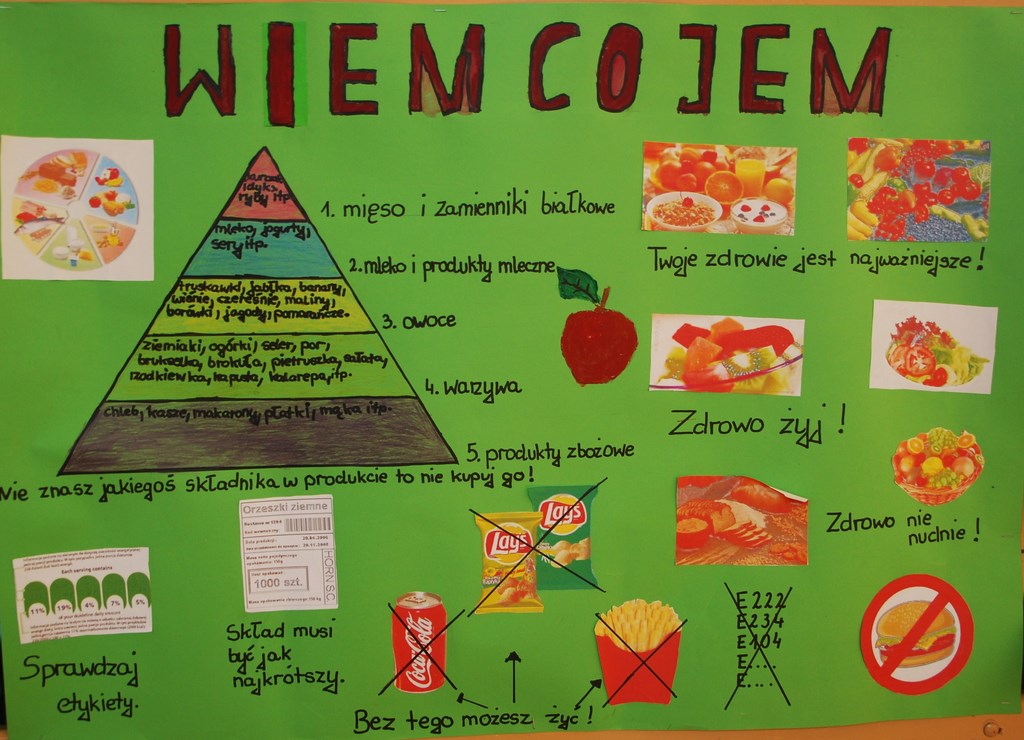 WIEM CO JEM
indyk,
ryby itp
mleko, jogurty,
sery itp.
truskawki, jabłka, banany,
wiśnie, czereśnie, maliny,
borówki, jagody, pomarańcze.
ziemiaki, ogórki, seler, por,
brukselka, brokuła, pietruszka, sałata,
rzodkiewka, kapusta, kalarepa, itp.
chleb, kasze, makarony, płatki, mąka itp.
1. mięso i zamienniki białkowe
2. mleko i produkty mleczne
3. owoce
4. warzywa
5. produkty zbożowe
Twoje zdrowie jest najważniejsze!
Zdrowo żyj!
Zdrowo nie
nudnie!
Nie znasz jakiegoś składnika w produkcie to nie kupuj go!
Each serving contains
11% 19% 4% 7% 5%
of your guideline daily amount
Sprawdzaj
etykiety.
Orzeszki ziemne
1000 szt.
HORN SC
Skład musi
być jak
najkrótszy.
Lay's
Lay's
Coca-Cola
Bez tego możesz żyć!
E222
E234
E104
E....
E....